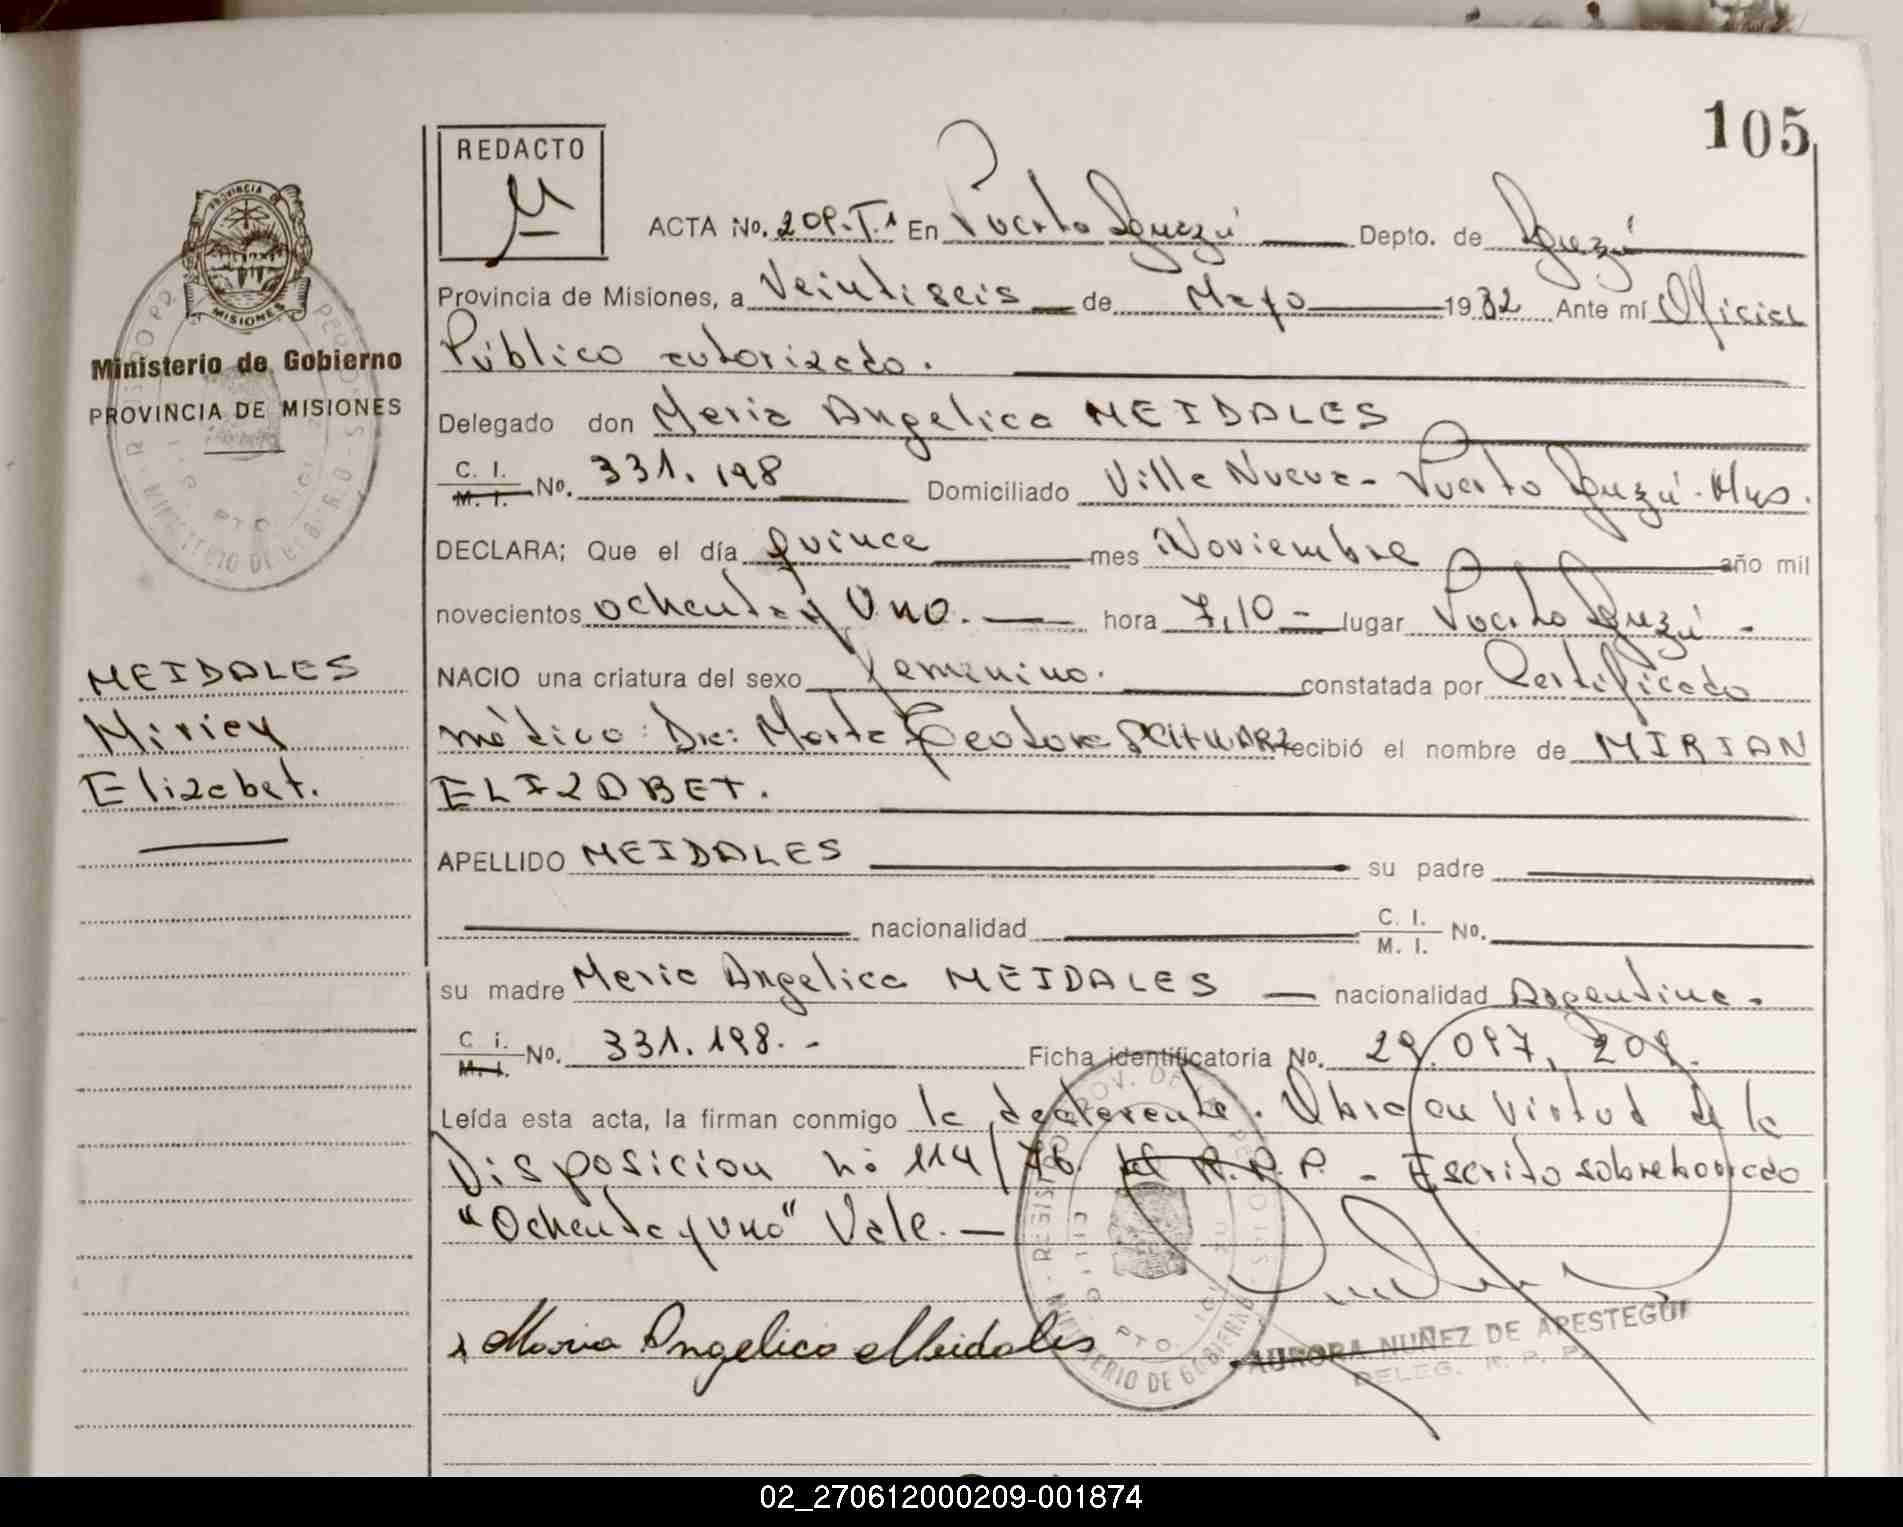 105
REDACTO
ACTA No. 209.T.1 En Puerto Iguazú Depto. de Iguazú
Provincia de Misiones, a Veintiseis de Mayo 1982 Ante mí Oficial
Público autorizado.
Delegado don Maria Angelica MEIDALES
C. I. M. I. No. 331.198 Domiciliado Villa Nueva - Puerto Iguazú - Mns.
DECLARA; Que el día quince mes Noviembre año mil
novecientos ochenta y Uno. hora 7,10 - lugar Puerto Iguazú -
NACIO una criatura del sexo femenino. constatada por Certificado
médico: Dra: Marta Teodora SCHWARZ recibió el nombre de MIRIAN
ELIZABET.
APELLIDO MEIDALES su padre
nacionalidad C. I. M. I. No.
su madre Maria Angelica MEIDALES nacionalidad Argentina.
C. i. M. I. No. 331.198. - Ficha identificatoria No. 29.097.209.
Leída esta acta, la firman conmigo la declarante. Obra en virtud de la
Disposicion nº 114/78. del R.P.P. - Escrito sobreborrado
"Ochenta y uno" Vale. —
Maria Angelica Meidales
AURORA NUÑEZ DE APESTEGUI
DELEG. R. P. P.
PROVINCIA
MISIONES
Ministerio de Gobierno
PROVINCIA DE MISIONES
MEIDALES
Mirian
Elizabet.
REGISTRO PROV. DE LAS PERSONAS
MINISTERIO DE GOBIERNO
02_270612000209-001874